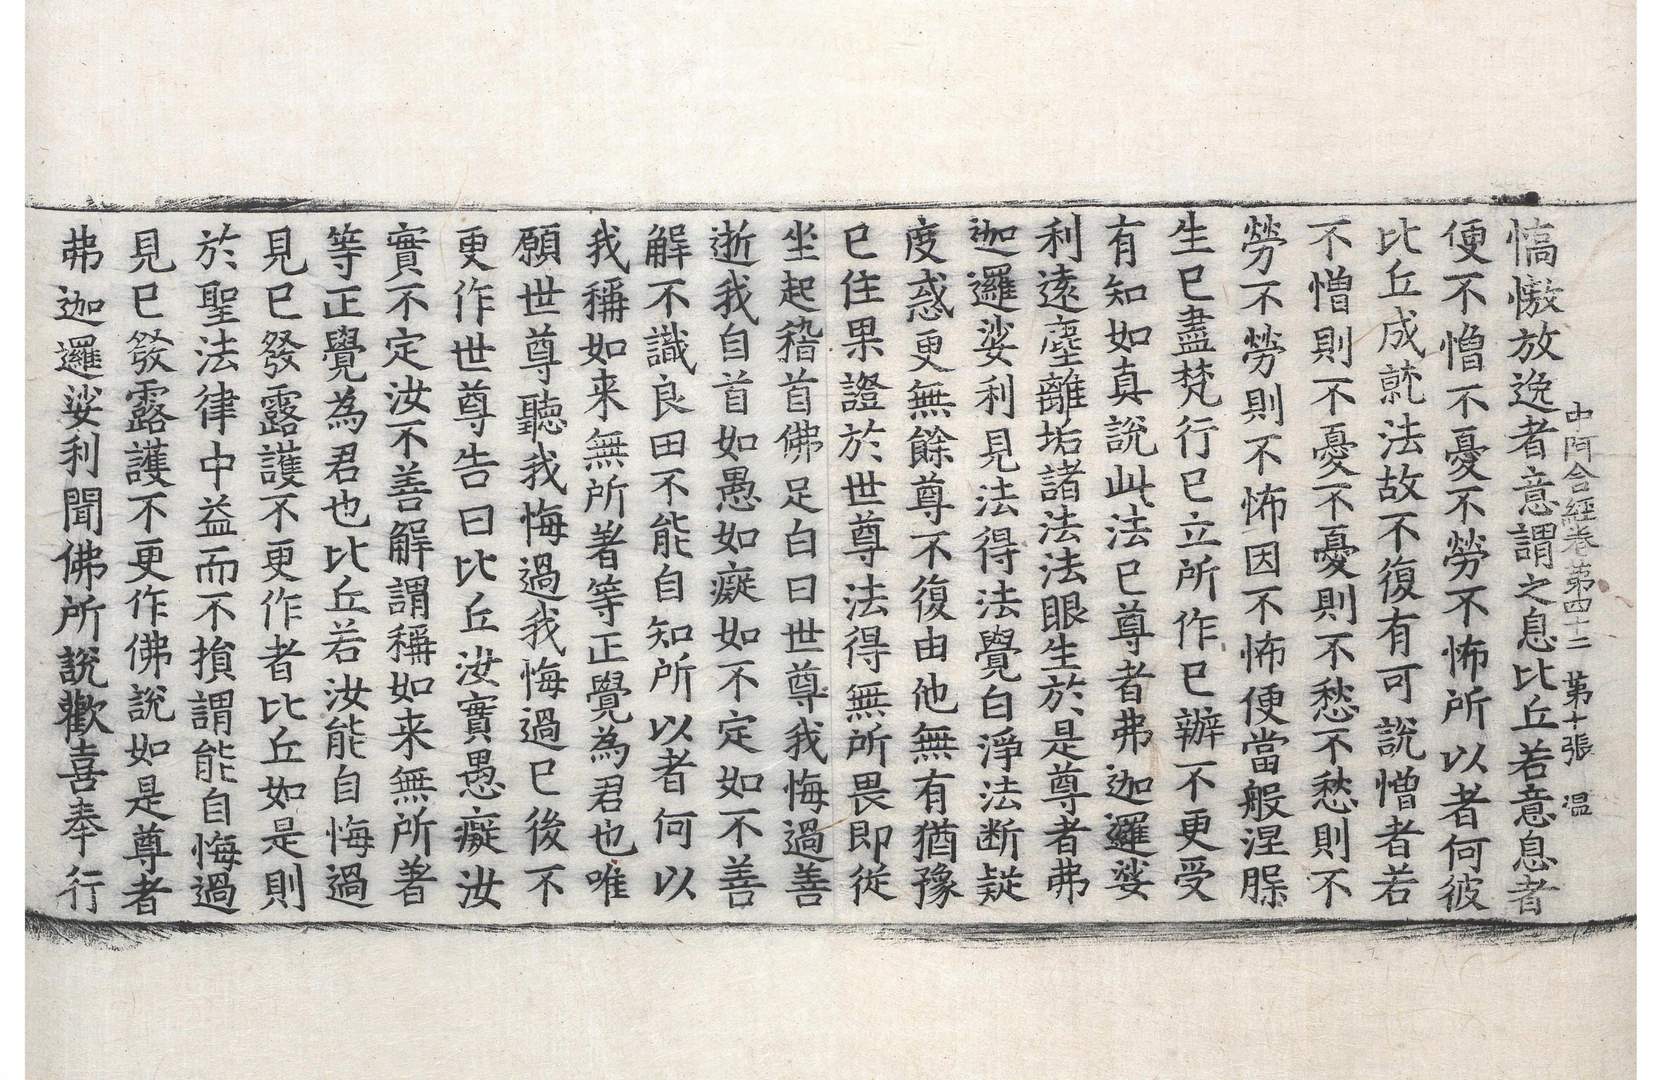 中阿含經卷第四十二　第十張　温
憍慠放逸者意謂之息比丘若意息者
便不憎不憂不勞不怖所以者何彼
比丘成就法故不復有可說憎者若
不憎則不憂不憂則不愁不愁則不
勞不勞則不怖因不怖便當般涅槃
生已盡梵行已立所作已辦不更受
有知如真說此法已尊者弗迦邏娑
利遠塵離垢諸法法眼生於是尊者弗
迦邏娑利見法得法覺白淨法断疑
度惑更無餘尊不復由他無有猶豫
已住果證於世尊法得無所畏即從
坐起稽首佛足白曰世尊我悔過善
逝我自首如愚如癡如不定如不善
解不識良田不能自知所以者何以
我稱如来無所著等正覺為君也唯
願世尊聽我悔過我悔過已後不
更作世尊告曰比丘汝實愚癡汝
實不定汝不善解謂稱如来無所著
等正覺為君也比丘若汝能自悔過
見已發露護不更作者比丘如是則
於聖法律中益而不損謂能自悔過
見已發露護不更作佛說如是尊者
弗迦邏娑利聞佛所說歡喜奉行